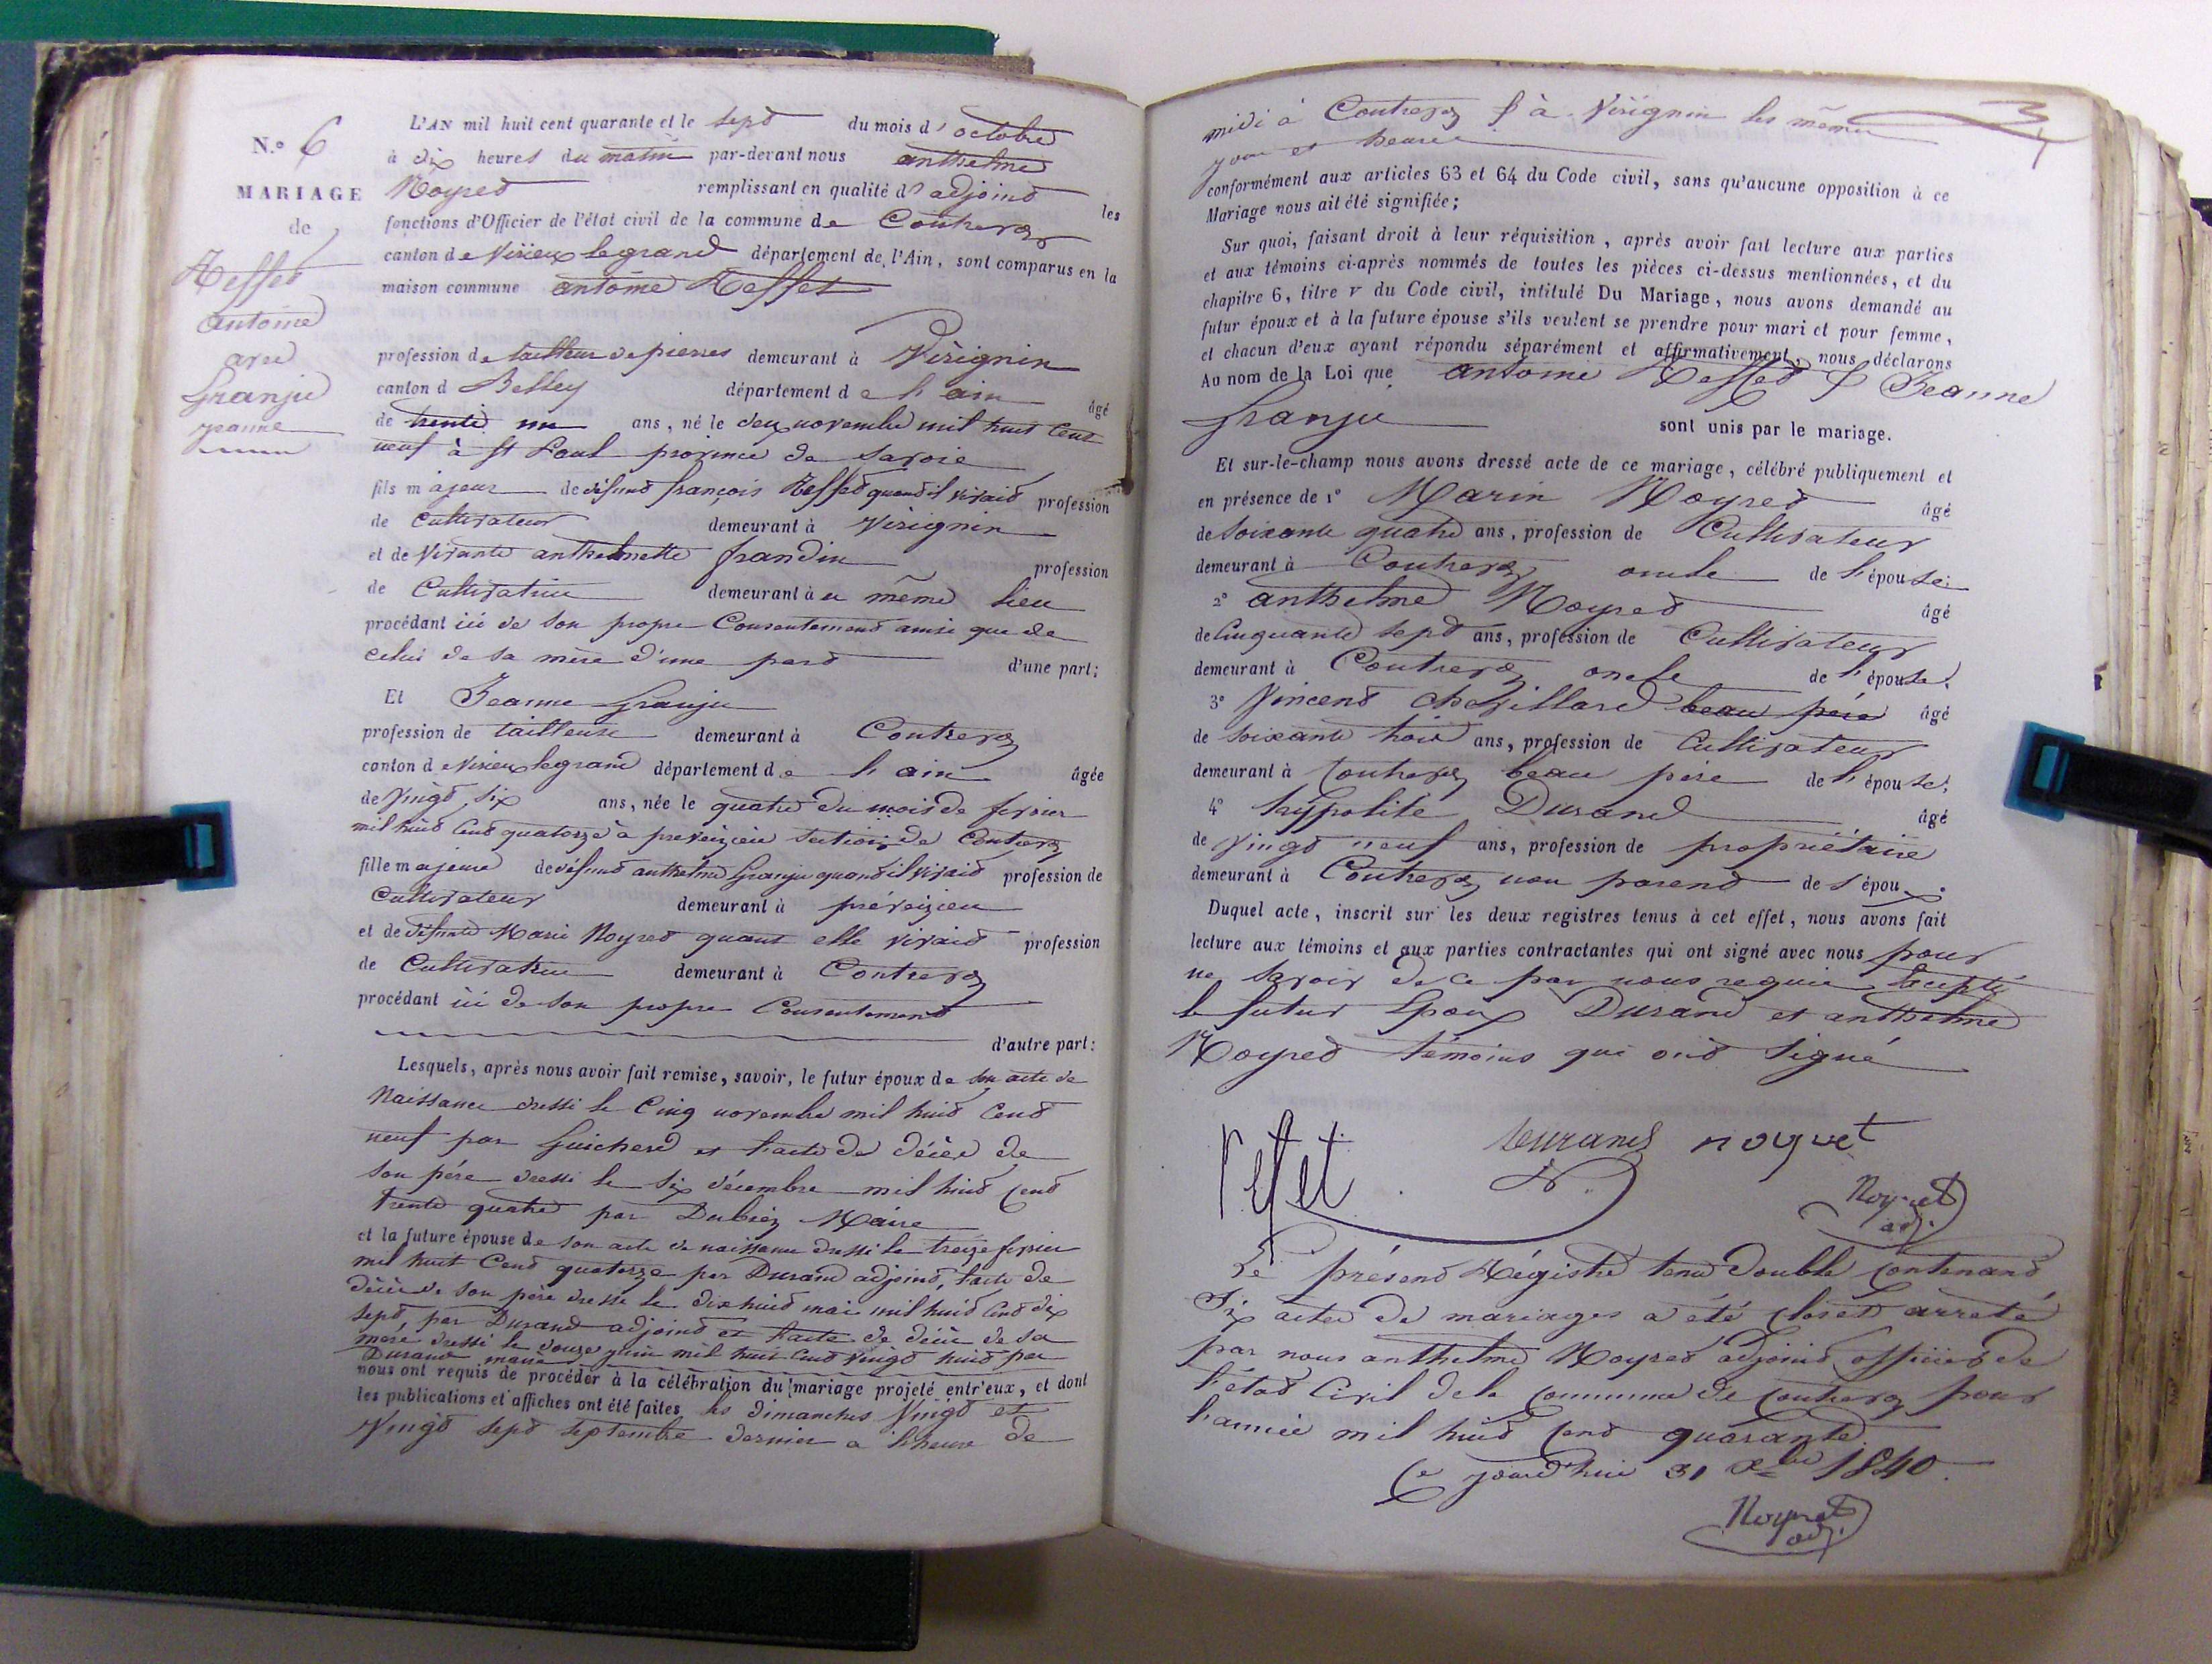 N.o 6
MARIAGE
de
Reffet
antoine
avec
Granju
jeanne
L'AN mil huit cent quarante et le sept du mois d'octobre
à dix heures du matin par-devant nous anthelme
Noyret remplissant en qualité d'adjoint les
fonctions d'Officier de l'état civil de la commune de Contrevoz
canton de Virieux legrand département de l'Ain, sont comparus en la
maison commune antoine Reffet
profession de tailleur de pierres demeurant à Virignin
canton d Belley département de l'ain âgé
de trente un ans, né le deux novembre mil huit Cent
neuf à St Paul province de Savoie
fils majeur de défunt françois Reffet quand il vivait profession
de Cultivateur demeurant à Virignin
et de Vivante anthelmette frandin profession
de Cultivatrice demeurant à u même lieu
procédant ici de son propre Consentement ainsi que de
celui de sa mère d'une part d'une part;
Et Jeanne Granju
profession de tailleuse demeurant à Contrevoz
canton de Virieux legrand département de l'ain âgée
de Vingt six ans, née le quatre du mois de fevrier
mil huit Cent quatorze à preveizieu section de Contrevoz
fille majeure de défunt anthelme Granju quand il vivait profession de
Cultivateur demeurant à préveizieu
et de défunte Marie Noyret quant elle vivait profession
de Cultivatrice demeurant à Contrevoz
procédant ici de son propre Consentement
d'autre part:
Lesquels, après nous avoir fait remise, savoir, le futur époux de son acte de
Naissance dressé le Cinq novembre mil huit Cent
neuf par Guicherd et l'acte de décès de
son père dressé le six décembre mil huit Cent
trente quatre par Dubiez Maire
et la future épouse de son acte de naissance dressé le treize fevrier
mil huit Cent quatorze par Durand adjoint, l'acte de
décès de son père dressé le dix huit mai mil huit Cent dix
sept, par Durand adjoint et l'acte de décès de sa
mère dressé le douze juin mil huit Cent Vingt huit par
Durand maire
nous ont requis de procéder à la célébration du mariage projeté entr'eux, et dont
les publications et affiches ont été faites les dimanches Vingt et
Vingt sept septembre dernier a l'heure de
midi à Contrevoz & à Virignin les mêmes
jour et heures
conformément aux articles 63 et 64 du Code civil, sans qu'aucune opposition à ce
Mariage nous ait été signifiée;
Sur quoi, faisant droit à leur réquisition, après avoir fait lecture aux parties
et aux témoins ci-après nommés de toutes les pièces ci-dessus mentionnées, et du
chapitre 6, titre v du Code civil, intitulé Du Mariage, nous avons demandé au
futur époux et à la future épouse s'ils veulent se prendre pour mari et pour femme,
et chacun d'eux ayant répondu séparément et affirmativement, nous déclarons
Au nom de la Loi que antoine Reffet & Jeanne
Granju sont unis par le mariage.
Et sur-le-champ nous avons dressé acte de ce mariage, célébré publiquement et
en présence de 1o Marin Noyret âgé
de Soixante quatre ans, profession de Cultivateur
demeurant à Contrevoz oncle de l'épouse;
2o anthelme Noyret âgé
de Cinquante sept ans, profession de Cultivateur
demeurant à Contrevoz oncle de l'épouse,
3o Vincent chevillard beau père âgé
de soixante trois ans, profession de Cultivateur
demeurant à Contrevoz beau père de l'épouse;
4o hyppolite Durand âgé
de Vingt neuf ans, profession de propriétaire
demeurant à Contrevoz non parent de l'époux.
Duquel acte, inscrit sur les deux registres tenus à cet effet, nous avons fait
lecture aux témoins et aux parties contractantes qui ont signé avec nous pour
ne savoir de ce par nous requis Excepté
le futur Epoux Durand et anthelme
Noyret témoins qui ont signé
refet durand noyret
Noyret
adj.
Le présent Régistre tenu double Contenant
Six actes de mariages a été clos et arreté
par nous anthelme Noyret adjoint officier de
l'état Civil de la Commune de Contrevoz pour
l'année mil huit Cent quarante
Ce jourd'hui 31 Xbre 1840.
Noyret
adj.